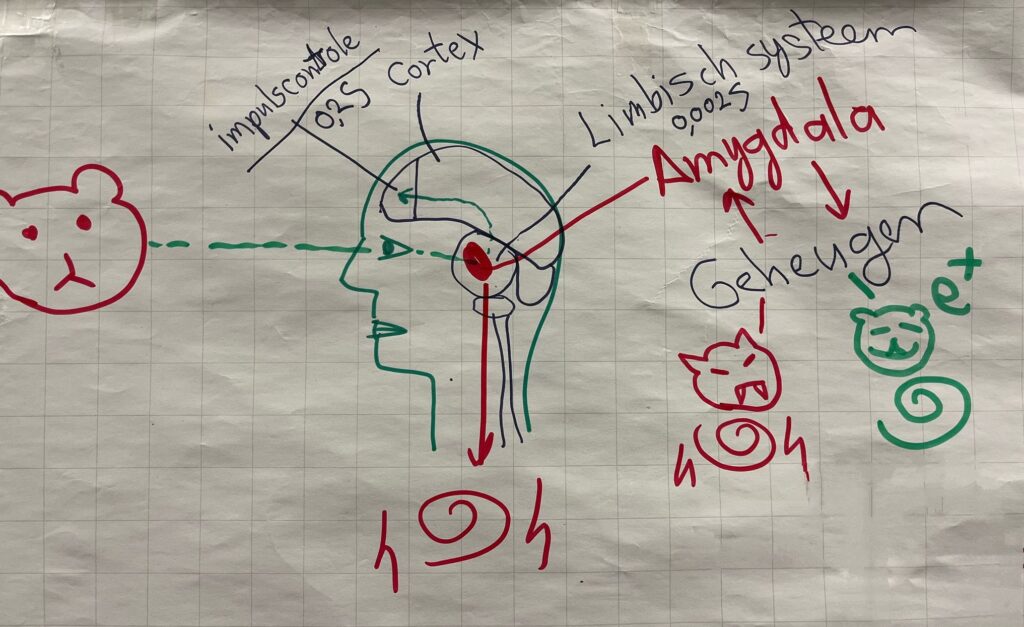 impulscontrole
0,25
Cortex
Limbisch systeem
0,0025
Amygdala
Geheugen
e+